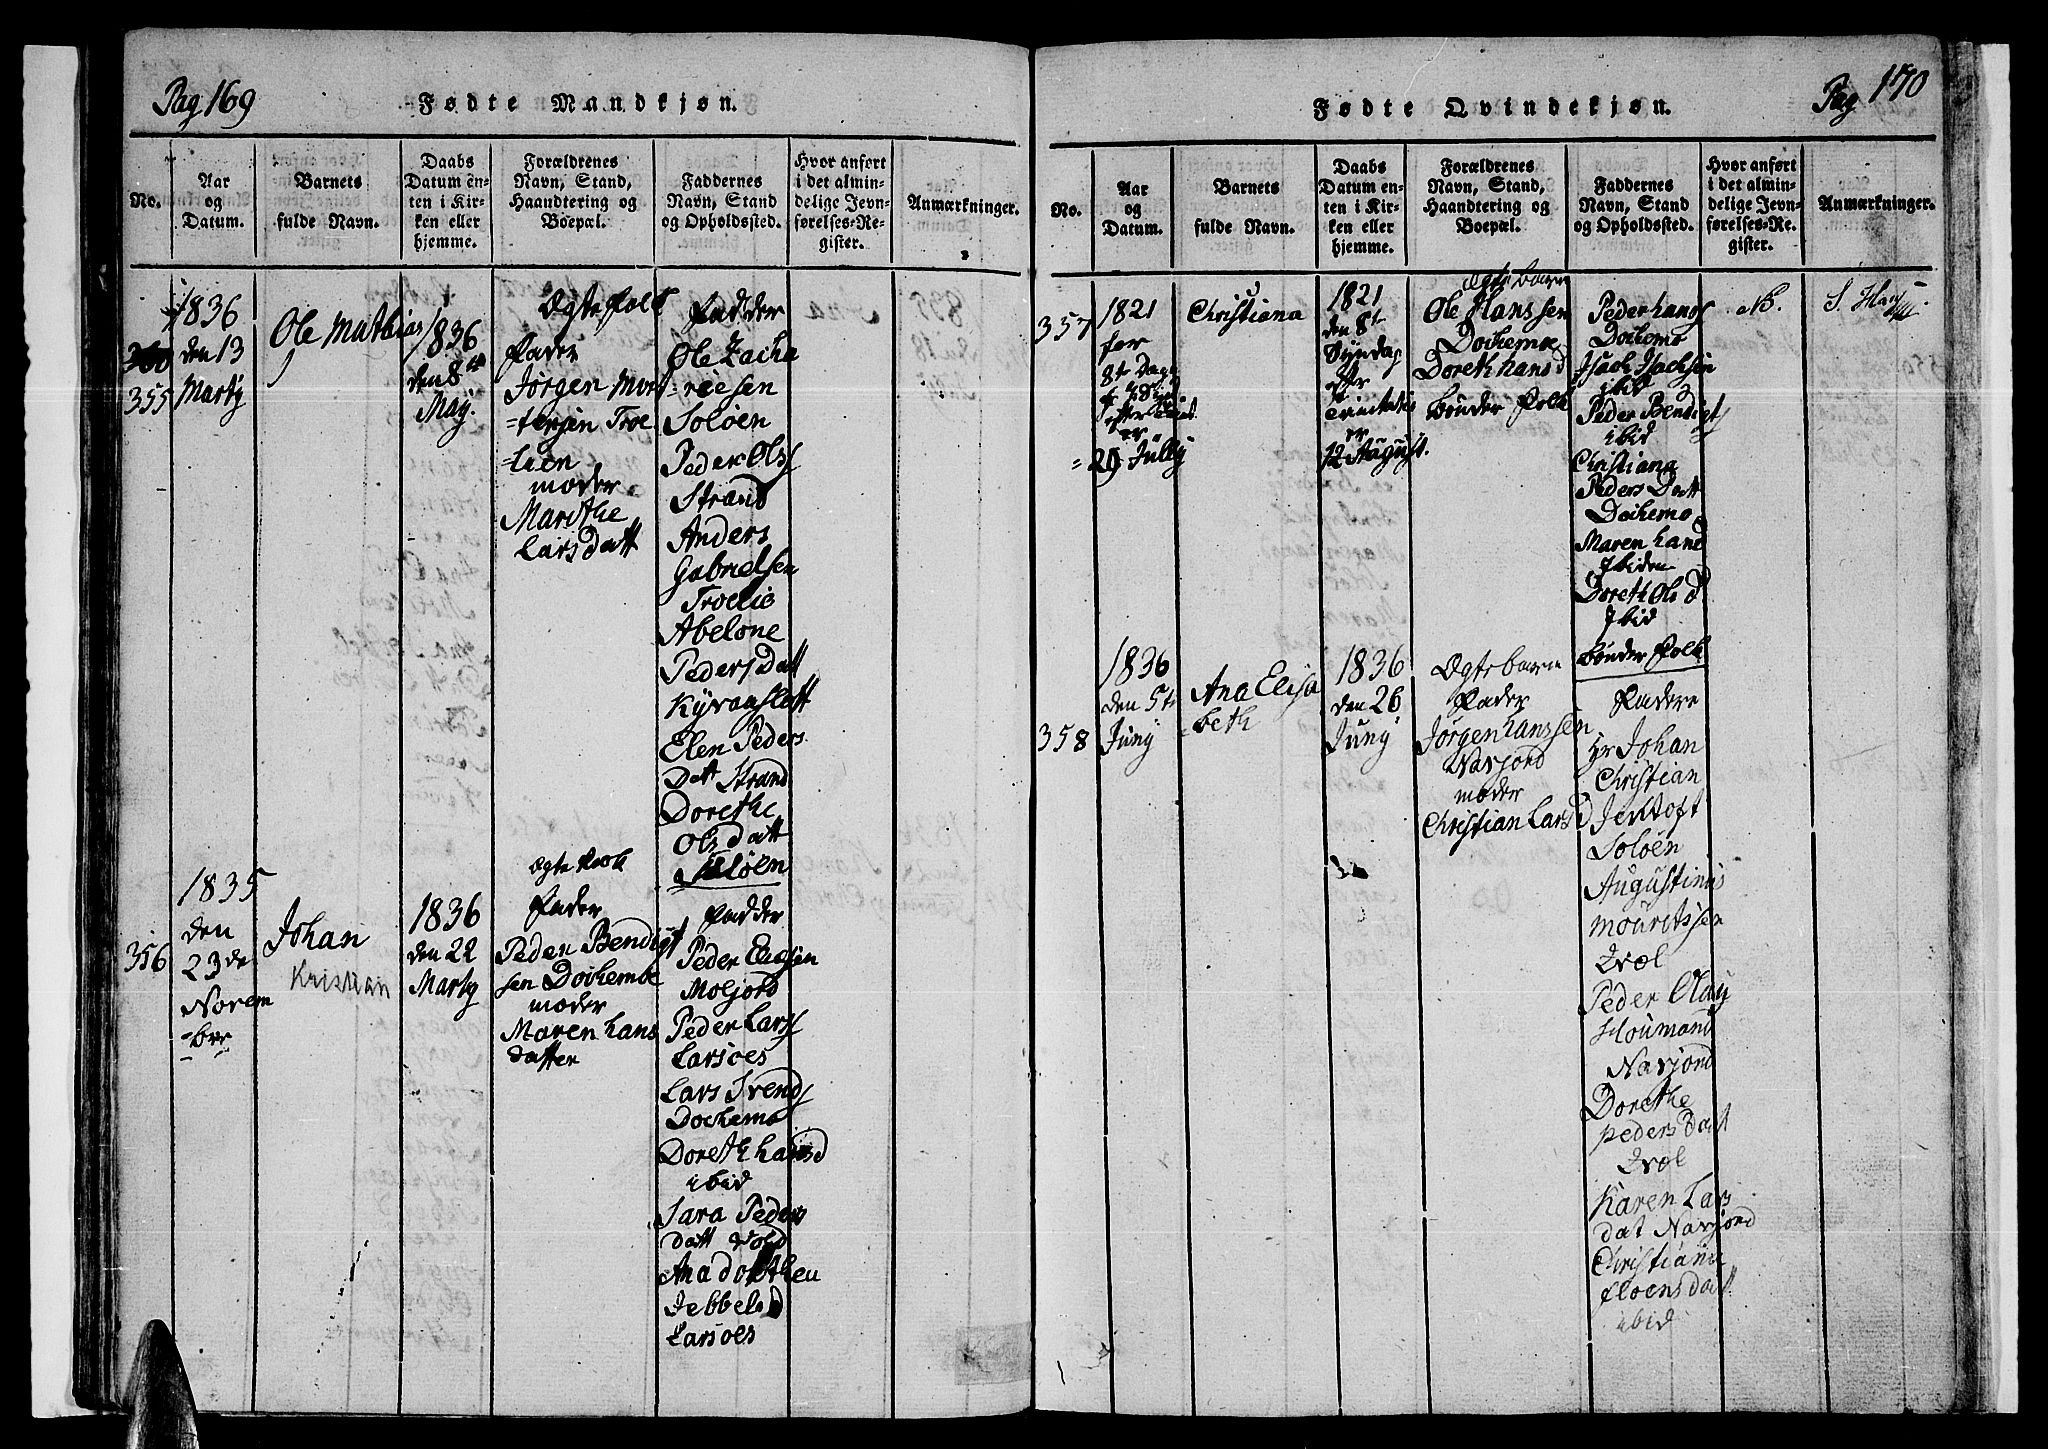 Pag 169
Fødte Mandkjøn.
No.
Aar
og
Datum.
Barnets
fulde Navn.
Daabs
Datum en-
ten i Kir-
ken eller
hjemme.
Forældrenes
Navn, Stand,
Haandtering og
Boepæl.
Faddernes
Navn, Stand
og Opholdssted.
Hvor anført
i det almin-
delige Jevn-
førelses-Re-
gister.
Anmærkninger.
355
1836
den 13
Martÿ
Ole Mathias
1836
den 8de
Maÿ.
Ægte Folk
Fader
Jørgen Mort
=tensen Troe
=lien
moder
Marithe
Larsdatt
Fadder
Ole Zacha
=riesen
Soløen
Peder Olss
Strand
Anders
Gabrielsen
Troelie
Abelone
Pedersdatt
Kÿvanslatt
Elen Peders
Datt Strand
Dorethe
Olsdatt
Soløen
356
1835
den
23de
Novem
=bre
Johan
Kristian
1836
den 22
Martÿ
Ægte Folk
Fader
Peder Bendigt
sen Dochemoe
moder
Maren Hans
datter
Fadder
Peder Eliesen
Moljord
Peder Larss
Larsoes
Lars Svends
Dochemo
Doreth Hansd
ibid
Sara Peders
datt Vold
Ana Dorthen
Jebbelsd
Larsoes
Pag 170
Fødte Qvindekjøn.
No.
Aar
og
Datum.
Barnets
fulde Navn.
Daabs
Datum en-
ten i Kir-
ken eller
hjemme.
Forældrenes
Navn, Stand,
Haandtering og
Boepæl.
Faddernes
Navn, Stand
og Opholdssted.
Hvor anført
i det almin-
delige Jevn-
førelses-Re-
gister.
Anmærkninger.
357
1821
for
8t Dage
er
=29 Jullÿ
Christiana
1821
den 8t
Syndag
efter
Trinitatis
er
12 August.
Ægte barn
Ole Hanssen
Dochemoe
Doreth Hansd
Bønder Folk
Peder Hanss
Dochemo
Isach Isachsen
ibid
Peder Bendigt
ibid
Christiana
Peders Datt
Dochemo
Maren Hand
Ibiden
Doreth Ols D
Ibid
Bønder Folk
NB.
358
1836
den 5te
Junÿ
Ana Elisa
=beth
1836
den 26
Junÿ
Ægte barn
Fader
Jørgen Hanssen
Navjord
moder
Christian Larsd
Fadere
Hr Johan
Christian
Jentoft
Soløen
Augustinus
Mouretssen
Evol
Peder Olaÿ
Houmand
Navjord
Dorethe
Pedersdatt
Evol
Karen Lars
dat Navjord
Christiana
ibid